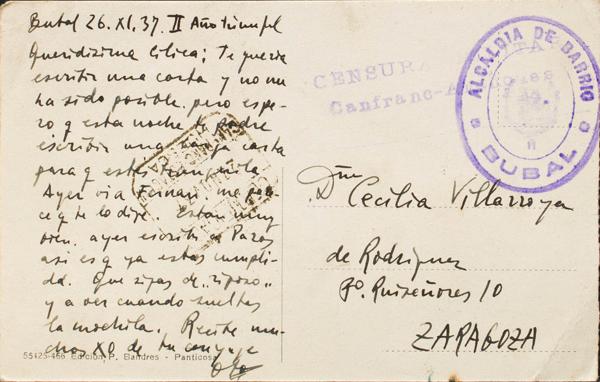 Bubal 26. XI. 37. II Año triunfal
Queridísima Cilica; Te quería
escribir una carta y no me
ha sido posible, pero espe-
ro q esta noche te podré
escribir una larga carta
para q estés tranquila.
Ayer vi a Fernan. me pare
ce q te lo dije. Están muy
bien, ayer escribí a
así es q ya estás cumpli-
da. Que sigas de „riposo"
y a ver cuando sueltas
la mochila. Recibe mu-
chos XO de tu conyuge
55425-466 Edición P. Bandres - Panticosa
CENSURA MILITAR
Canfranc-
ALCALDIA DE BARRIO
BUBAL
Dña Cecilia Villarroya
de Rodriguez
Pº. Ruiseñores 10
ZARAGOZA